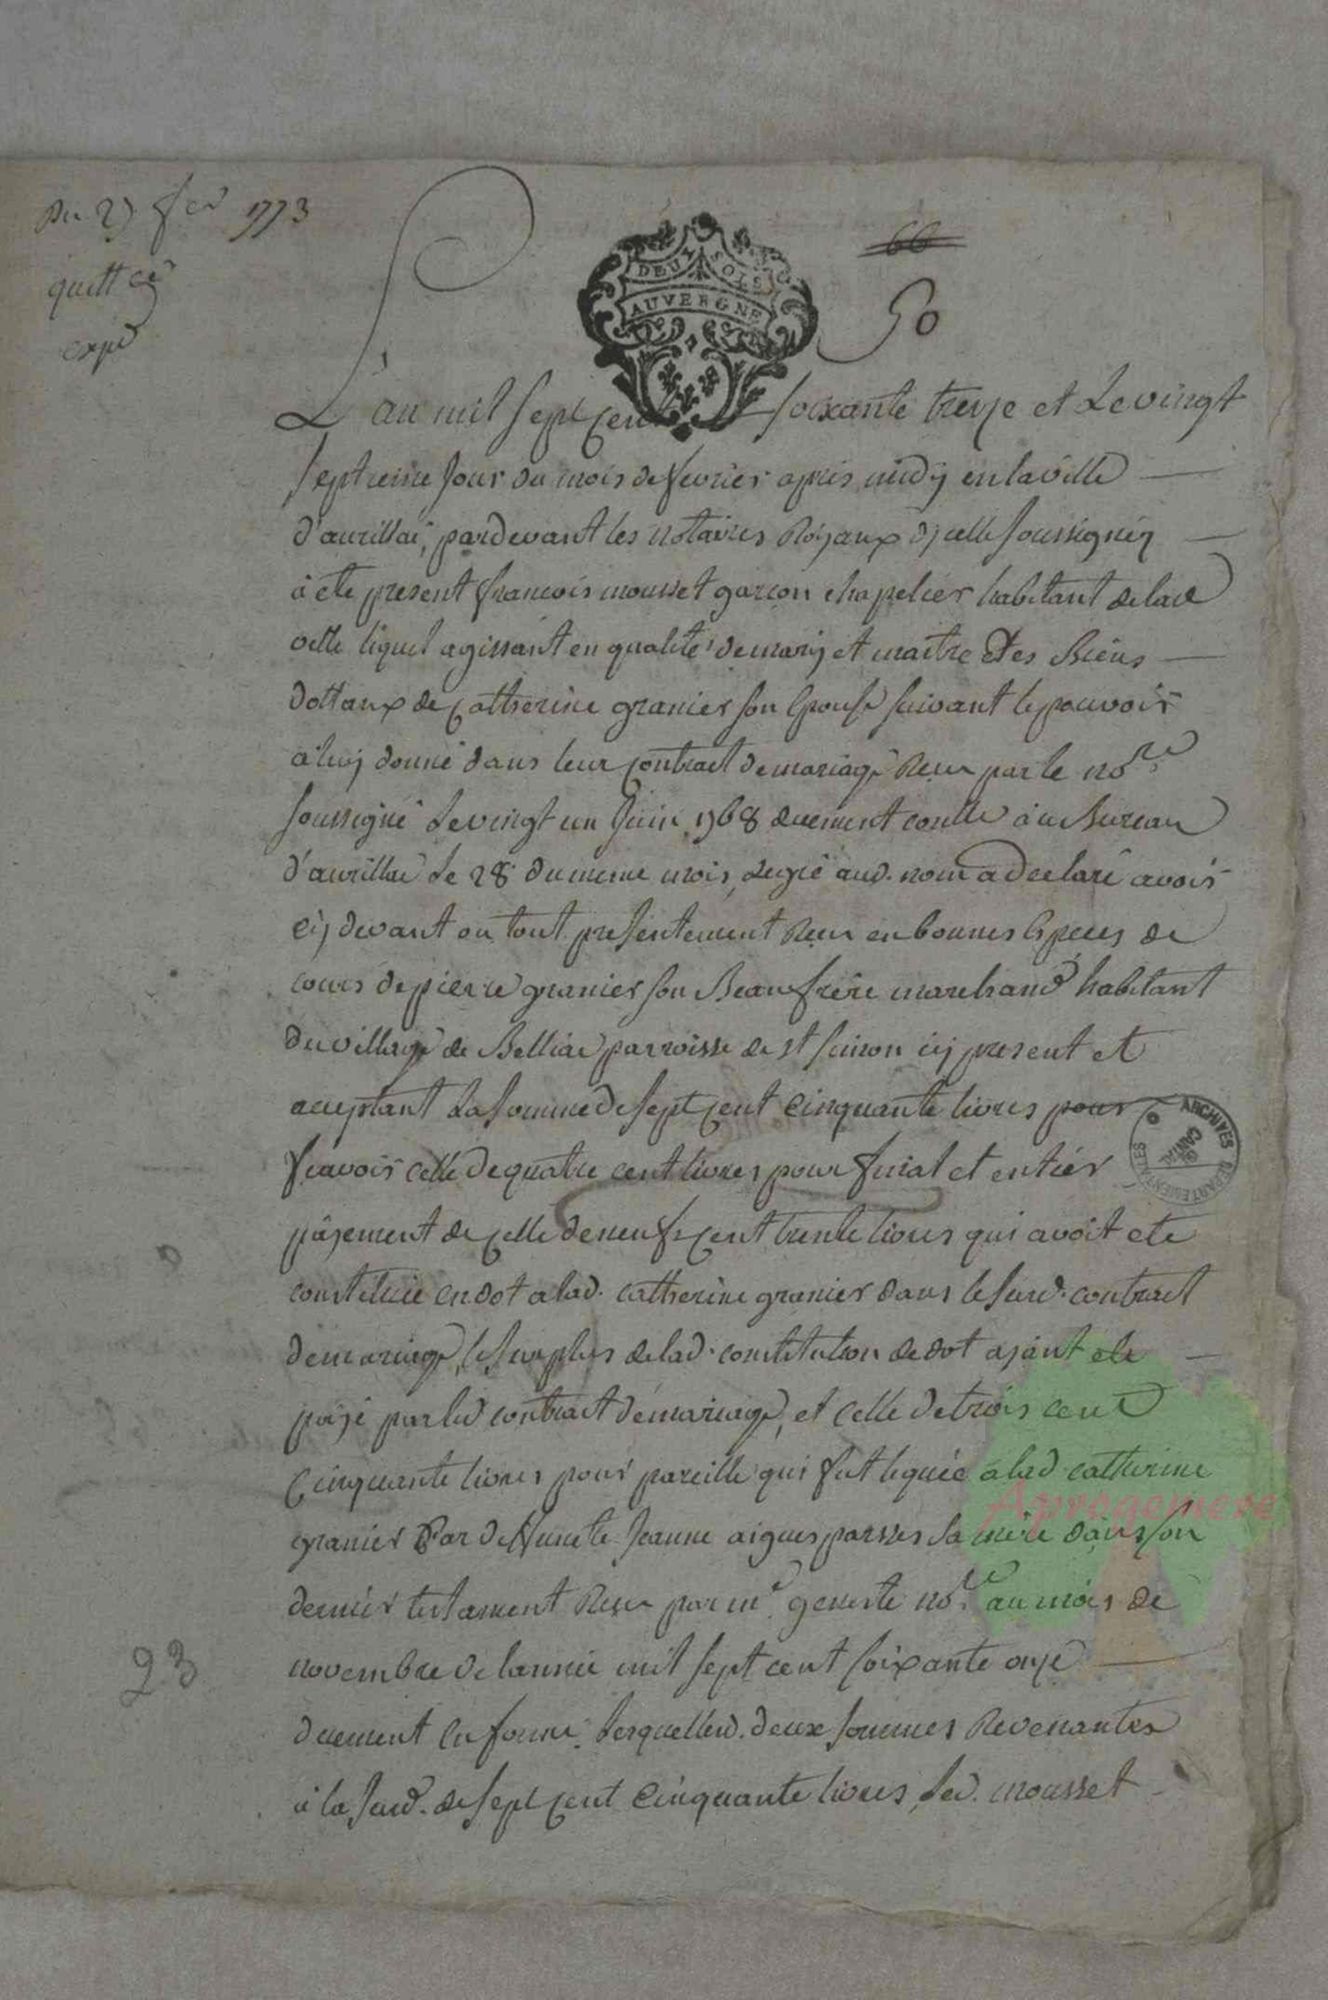 Du 27 fer 1773
quittce
expe
DEUX SOLS
AUVERGNE
66
50
L'an mil sept cent soixante treize et Le vingt
septieme Jour du mois de fevrier apres midy en la ville
d'aurillac, pardevant les notaires Royaux d'jcelle soussignéz
à ete present francois mousset garçon chapelier habitant de lad
ville lequel agissant en qualité de mary et maitre des Biens
dottaux de Catherine granier son Epouse suivant le pouvoir
a luy donné dans leur contract de mariage Recu par le nore
soussigné Le vingt un Juin 1768 duement conllé au Bureau
d'aurillac Le 28 du meme mois, Degré aud. nom a declaré avoir
cy devant ou tout presentement Recu en bonnes Especes de
cours de pierre granier son Beaufrère marchand habitant
du village de Belliac parroisse de st simon icy present et
acceptant La somme de sept cent cinquante livres pour
scavoir celle de quatre cent livres pour final et entier
pajement de celle de neuf cent trente livres qui avoit ete
constituée en dot a lad. catherine granier dans le susd. contract
de mariage, le surplus de lad. constitution de dot ajant ete
pajé par led contract de mariage, et celle de trois cent
Cinquante livres pour pareille qui fut leguée a lad catherine
granier Par deffunete Jeanne aiguesparses sa mère dans son
dernier testament Recu par me. geneste nore au mois de
novembre de lannée mil sept cent soixante onze
duement En forme. Lesquelles d. deux sommes Revenantes
à la susd. de sept cent cinquante livres, led. mousset
23
ARCHIVES DEPARTEMENTALES
CANTAL
Aprogemere